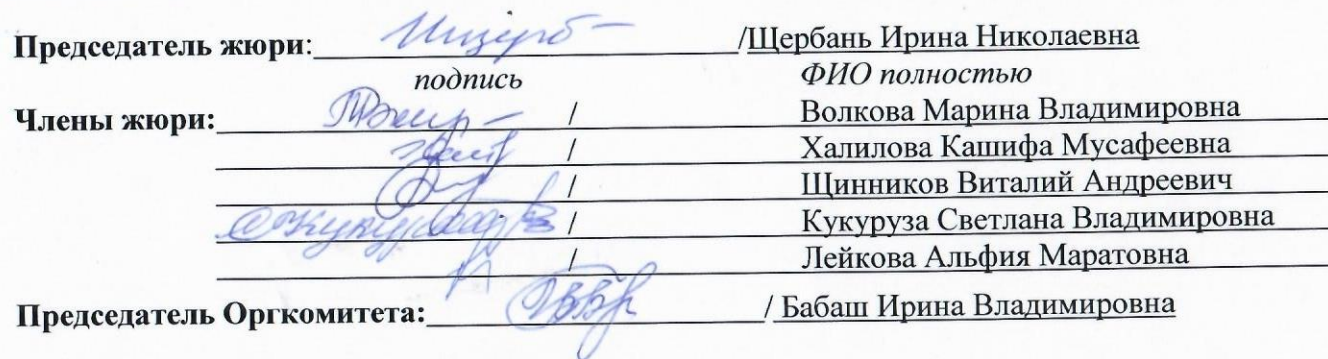 Председатель жюри: /Щербань Ирина Николаевна
подпись ФИО полностью
Члены жюри: / Волкова Марина Владимировна
/ Халилова Кашифа Мусафеевна
/ Щинников Виталий Андреевич
/ Кукуруза Светлана Владимировна
/ Лейкова Альфия Маратовна
Председатель Оргкомитета: / Бабаш Ирина Владимировна